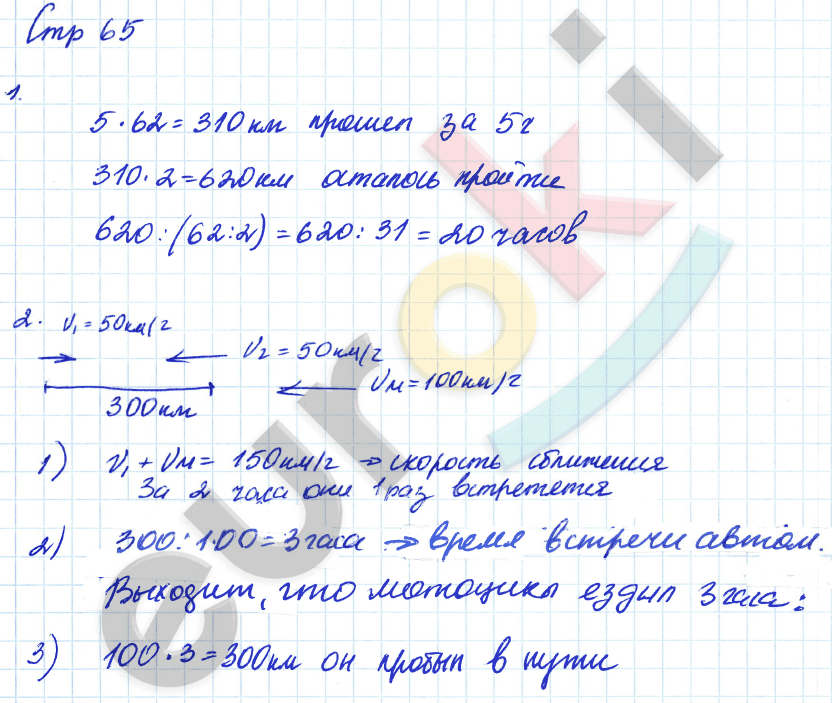 Стр 65
1.
5·62=310км прошел за 5ч
310·2=620км осталось пройти
620:(62:2)=620:31=20 часов
2. V₁=50км/ч
V₂=50км/ч
Vм=100км/ч
300км
1) V₁+Vм=150км/ч → скорость сближения
За 2 часа они 1 раз встретется
2) 300:100=3часа → время встречи автом.
Выходит, что мотоцикл ездил 3часа:
3) 100·3=300км он пробыл в пути
euroki